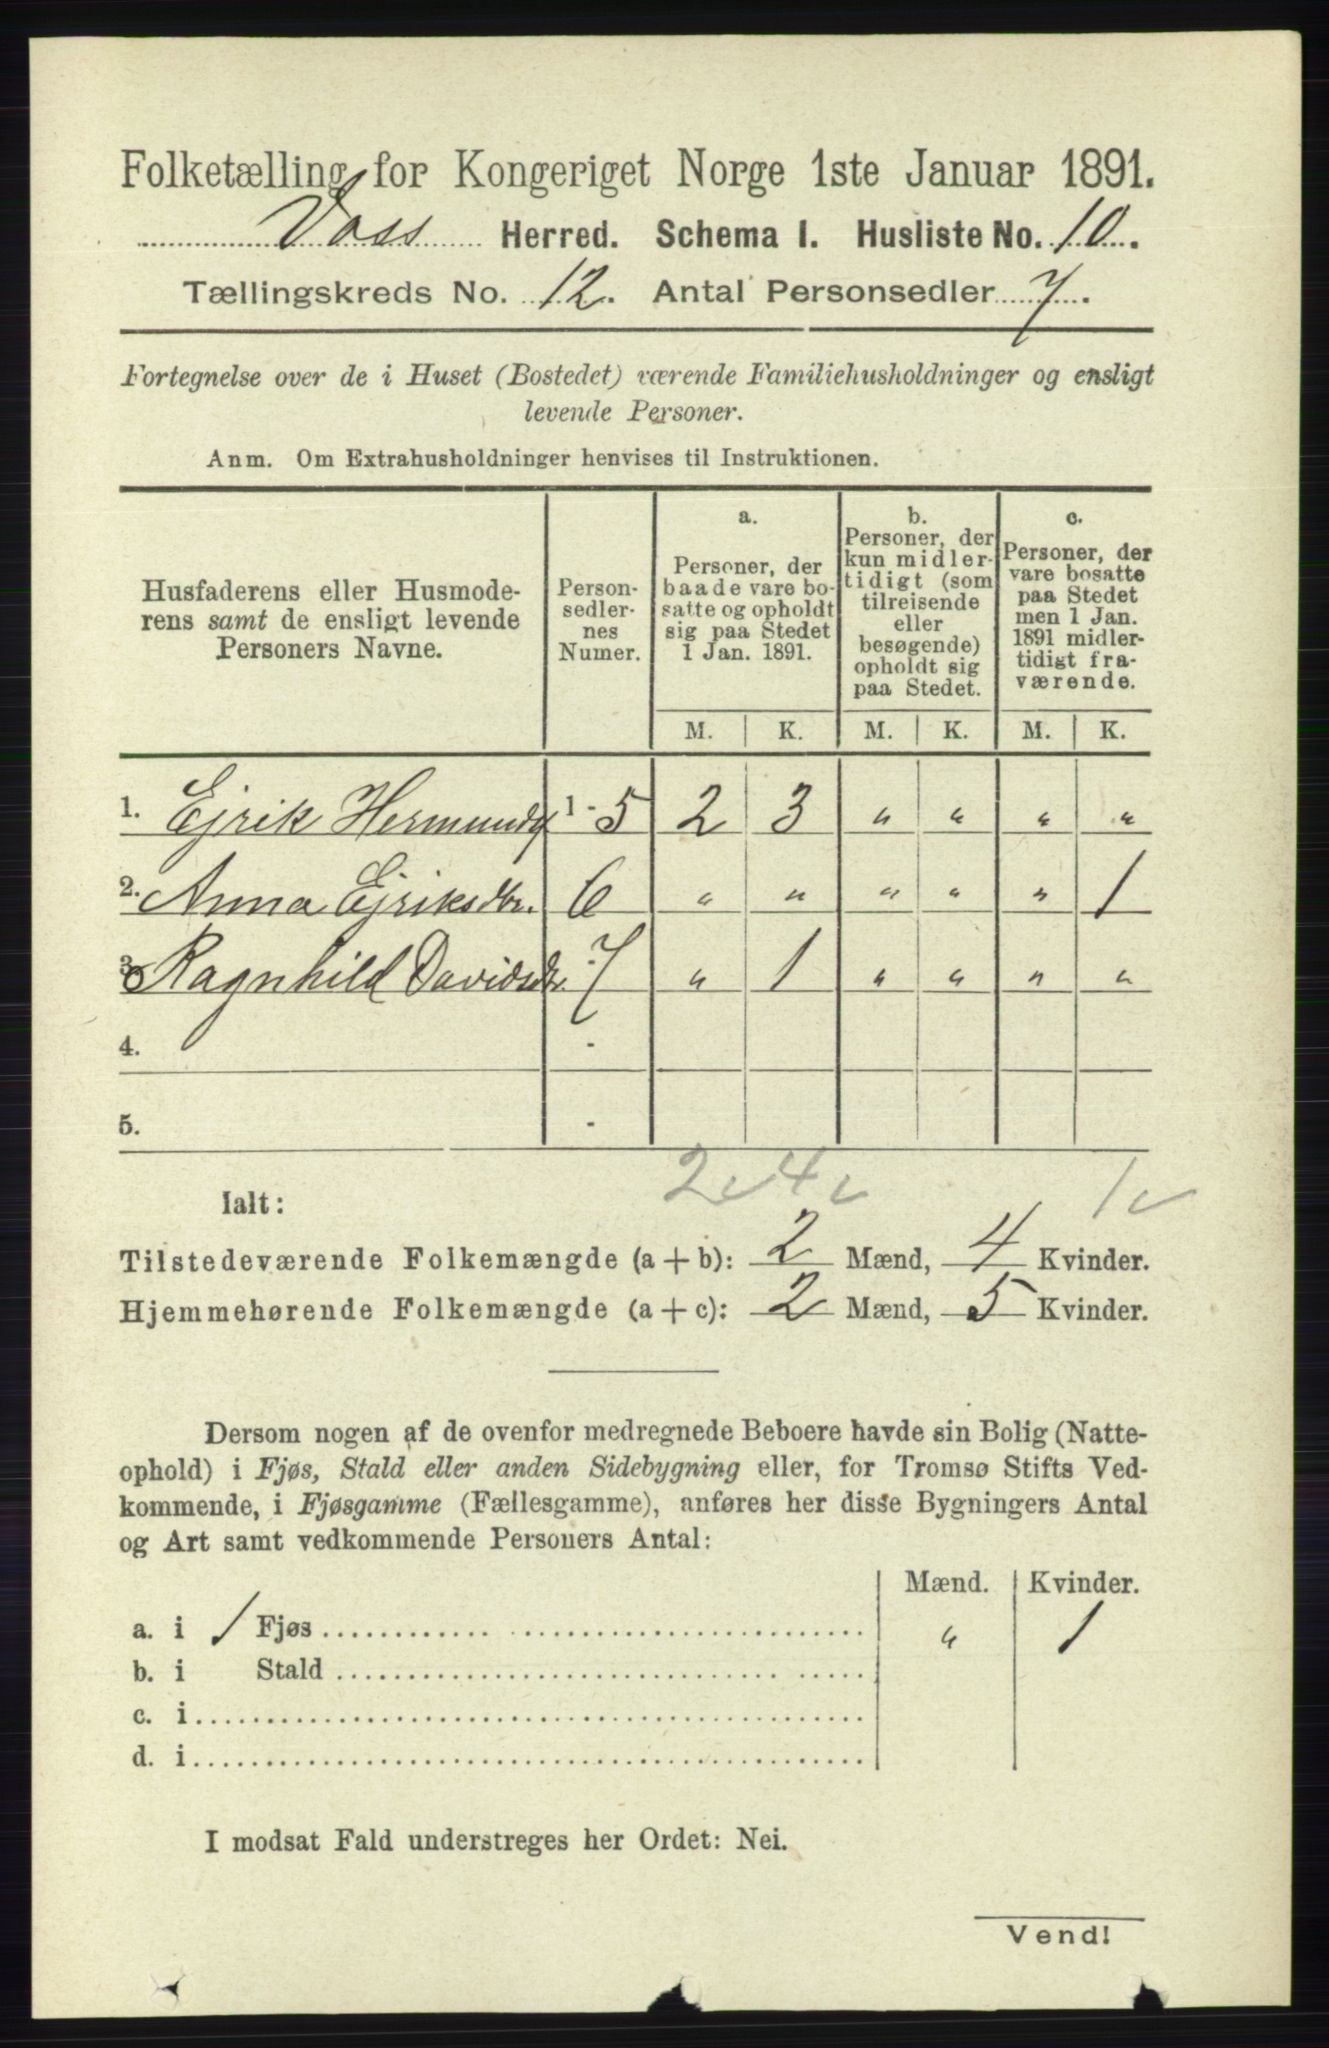 Folketælling for Kongeriget Norge 1ste Januar 1891.
Voss Herred. Schema I. Husliste No. 10.
Tællingskreds No. 12. Antal Personsedler 7.
Fortegnelse over de i Huset (Bostedet) værende Familiehusholdninger og ensligt
levende Personer.
Anm. Om Extrahusholdninger henvises til Instruktionen.
Husfaderens eller Husmode-
rens samt de ensligt levende
Personers Navne.
Person-
sedler-
nes
Numer.
a.
Personer, der
baade vare bo-
satte og opholdt
sig paa Stedet
1 Jan. 1891.
b.
Personer, der
kun midler-
tidigt (som
tilreisende
eller
besøgende)
opholdt sig
paa Stedet.
c.
Personer, der
vare bosatte
paa Stedet
men 1 Jan.
1891 midler-
tidigt fra-
værende.
M. K. M. K. M. K.
1. Ejrik Hermunds 1-5 2 3 " " " "
2. Anna Ejriksdtr. 6 " " " " " 1
3. Ragnhild Davidsdtr. 7 " 1 " " " "
4. -
5. -
2 4 1
Ialt:
Tilstedeværende Folkemængde (a + b): 2 Mænd, 4 Kvinder.
Hjemmehørende Folkemængde (a + c): 2 Mænd, 5 Kvinder.
Dersom nogen af de ovenfor medregnede Beboere havde sin Bolig (Natte-
ophold) i Fjøs, Stald eller anden Sidebygning eller, for Tromsø Stifts Ved-
kommende, i Fjøsgamme (Fællesgamme), anføres her disse Bygningers Antal
og Art samt vedkommende Personers Antal:
Mænd. Kvinder.
a. i 1 Fjøs " 1
b. i Stald
c. i
d. i
I modsat Fald understreges her Ordet: Nei.
Vend!